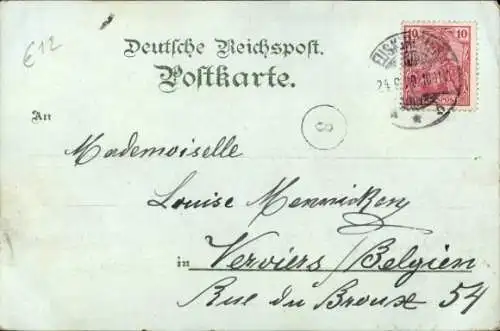 €12
Deutsche Reichspost.
Postkarte.
10 10
An
8
Mademoiselle
Louise Mennicken
in Verviers / Belgien
Rue du Broux 54